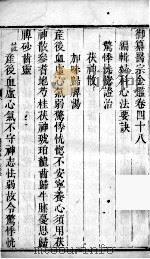 御纂醫宗金鑑卷四十八
編輯婦科心法要訣
驚悸恍惚證治
茯神散
加味歸脾湯
產後血虛心氣弱驚悸恍惚不安寧養心須用茯
神散參耆地芍桂茯神琥珀龍齒歸牛膝憂思歸
脾砂齒靈
註產後血虛心氣不守神志怯弱故令驚悸恍